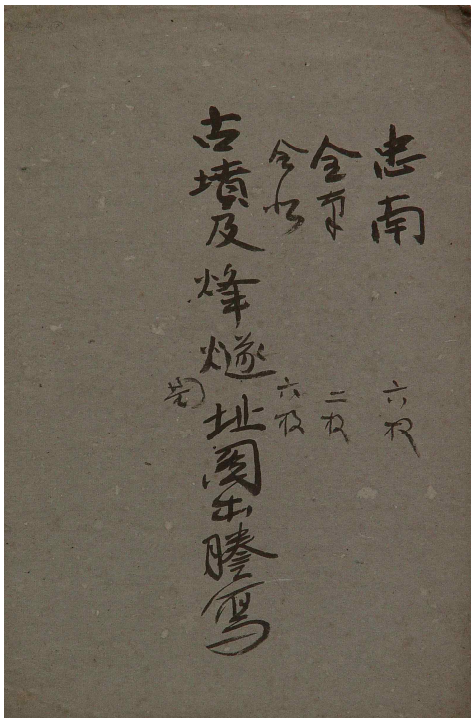 忠南 六枚
全南 二枚
全北 六枚
古墳及烽燧址圖出謄寫